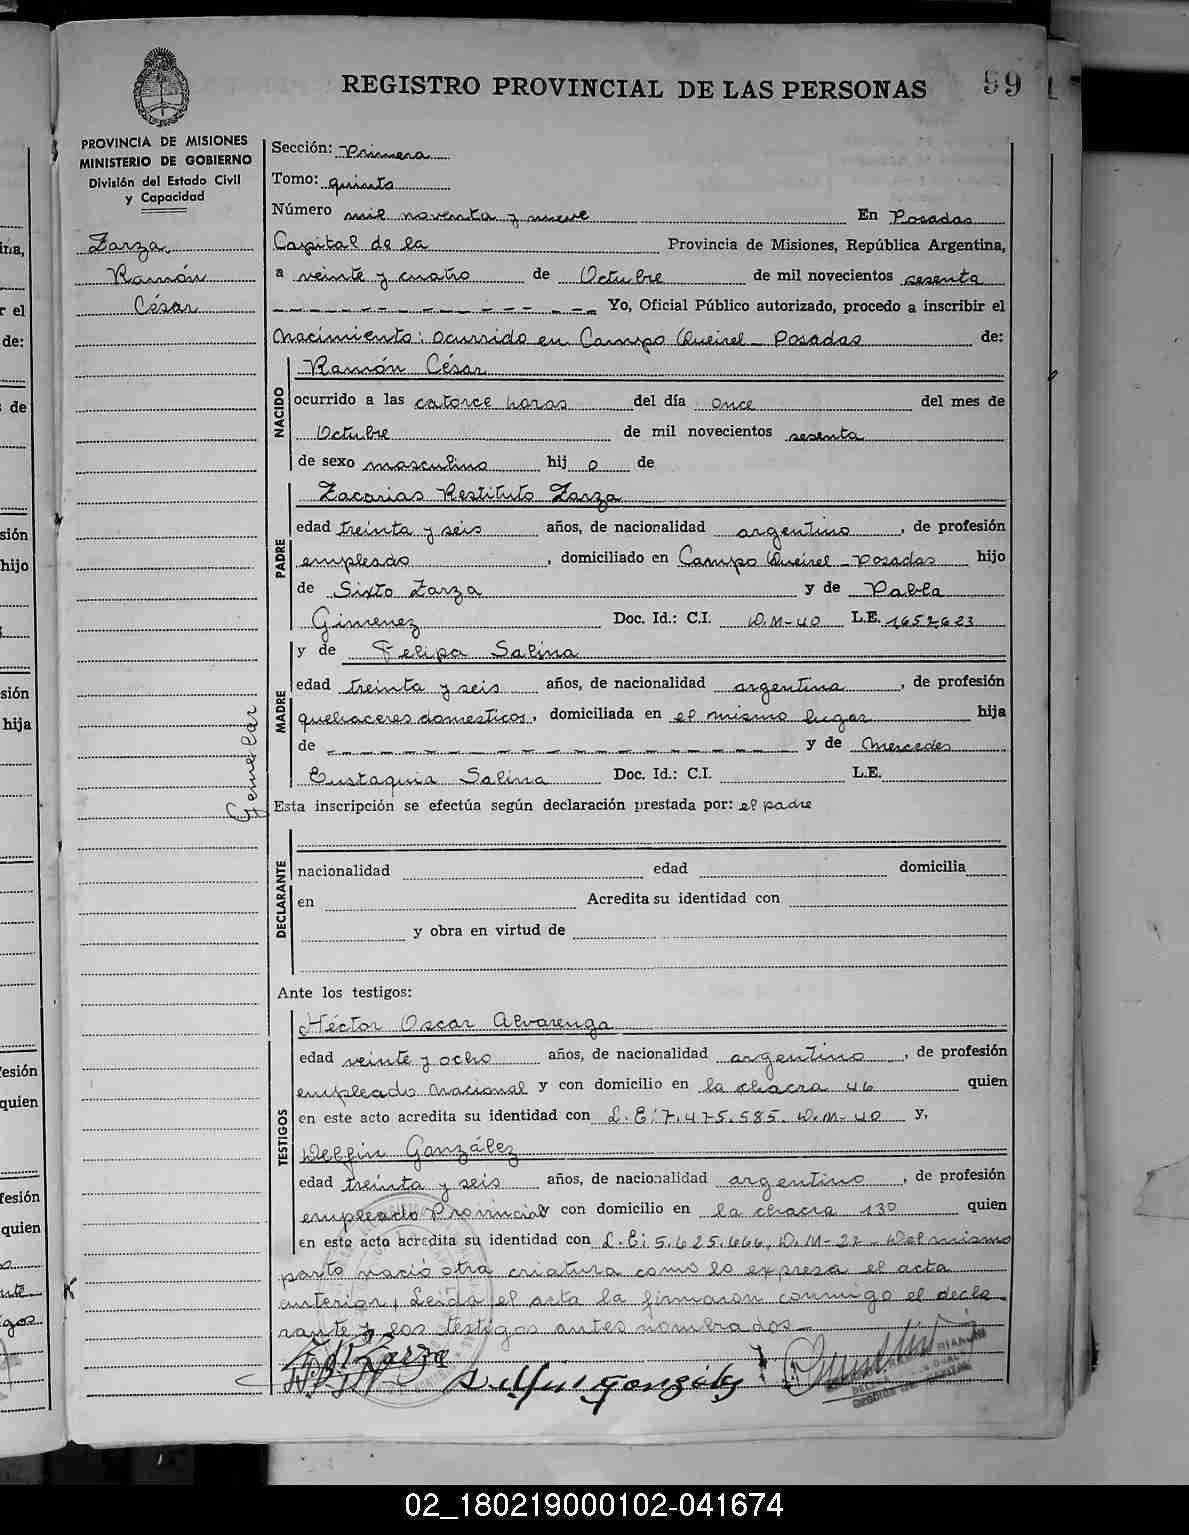 REGISTRO PROVINCIAL DE LAS PERSONAS
99
PROVINCIA DE MISIONES
MINISTERIO DE GOBIERNO
División del Estado Civil
y Capacidad
Zarza
Ramón
César
Gemelar
Sección: Primera
Tomo: quinto
Número mil noventa y nueve En Posadas
Capital de la Provincia de Misiones, República Argentina,
a veinte y cuatro de Octubre de mil novecientos sesenta
Yo, Oficial Público autorizado, procedo a inscribir el
Nacimiento: ocurrido en Campo Queirel - Posadas de:
NACIDO
Ramón César
ocurrido a las catorce horas del día once del mes de
Octubre de mil novecientos sesenta
de sexo masculino hijo de
PADRE
Zacarias Restituto Zarza
edad treinta y seis años, de nacionalidad argentino, de profesión
empleado, domiciliado en Campo Queirel - Posadas hijo
de Sixto Zarza y de Pabla
Gimenez Doc. Id.: C.I. D.M-40 L.E. 1652623
y de Felipa Salina
MADRE
edad treinta y seis años, de nacionalidad argentina, de profesión
quehaceres domesticos, domiciliada en el mismo lugar hija
de y de Mercedes
Eustaquia Salina Doc. Id.: C.I. L.E.
Esta inscripción se efectúa según declaración prestada por: el padre
DECLARANTE
nacionalidad edad domicilia
en Acredita su identidad con
y obra en virtud de
Ante los testigos:
TESTIGOS
Héctor Oscar Alvarenga
edad veinte y ocho años, de nacionalidad argentino, de profesión
empleado Nacional y con domicilio en la chacra 46 quien
en este acto acredita su identidad con L.E: 7.475.585. D.M-40 y,
Delfin González
edad treinta y seis años, de nacionalidad argentino, de profesión
empleado Provincial y con domicilio en la chacra 130 quien
en este acto acredita su identidad con L.E: 5.625.666, D.M-27 - Del mismo
parto nació otra criatura como lo expresa el acta
anterior, Leida el acta la firmaron conmigo el decla
rante y los testigos antes nombrados -
Z. R. Zarza
Delfin González
02_180219000102-041674